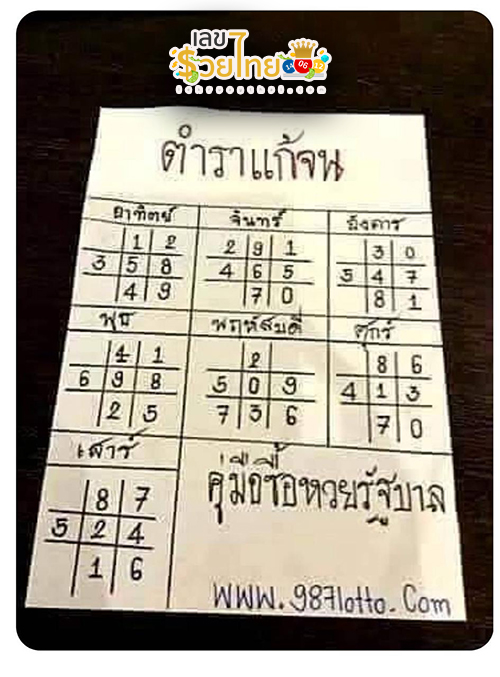 เลข7
รวยไทย 14 06 12
lekruaythai.com
ตำราแก้จน
อาทิตย์ จันทร์ อังคาร
1 2 2 9 1 3 0
3 5 8 4 6 5 5 4 7
4 9 7 0 8 1
พุธ พฤหัสบดี ศุกร์
4 1 2 8 6
6 9 8 5 0 9 4 1 3
2 5 7 3 6 7 0
เสาร์
8 7
5 2 4
1 6
คู่มือซื้อหวยรัฐบาล
WWW.987lotto.Com